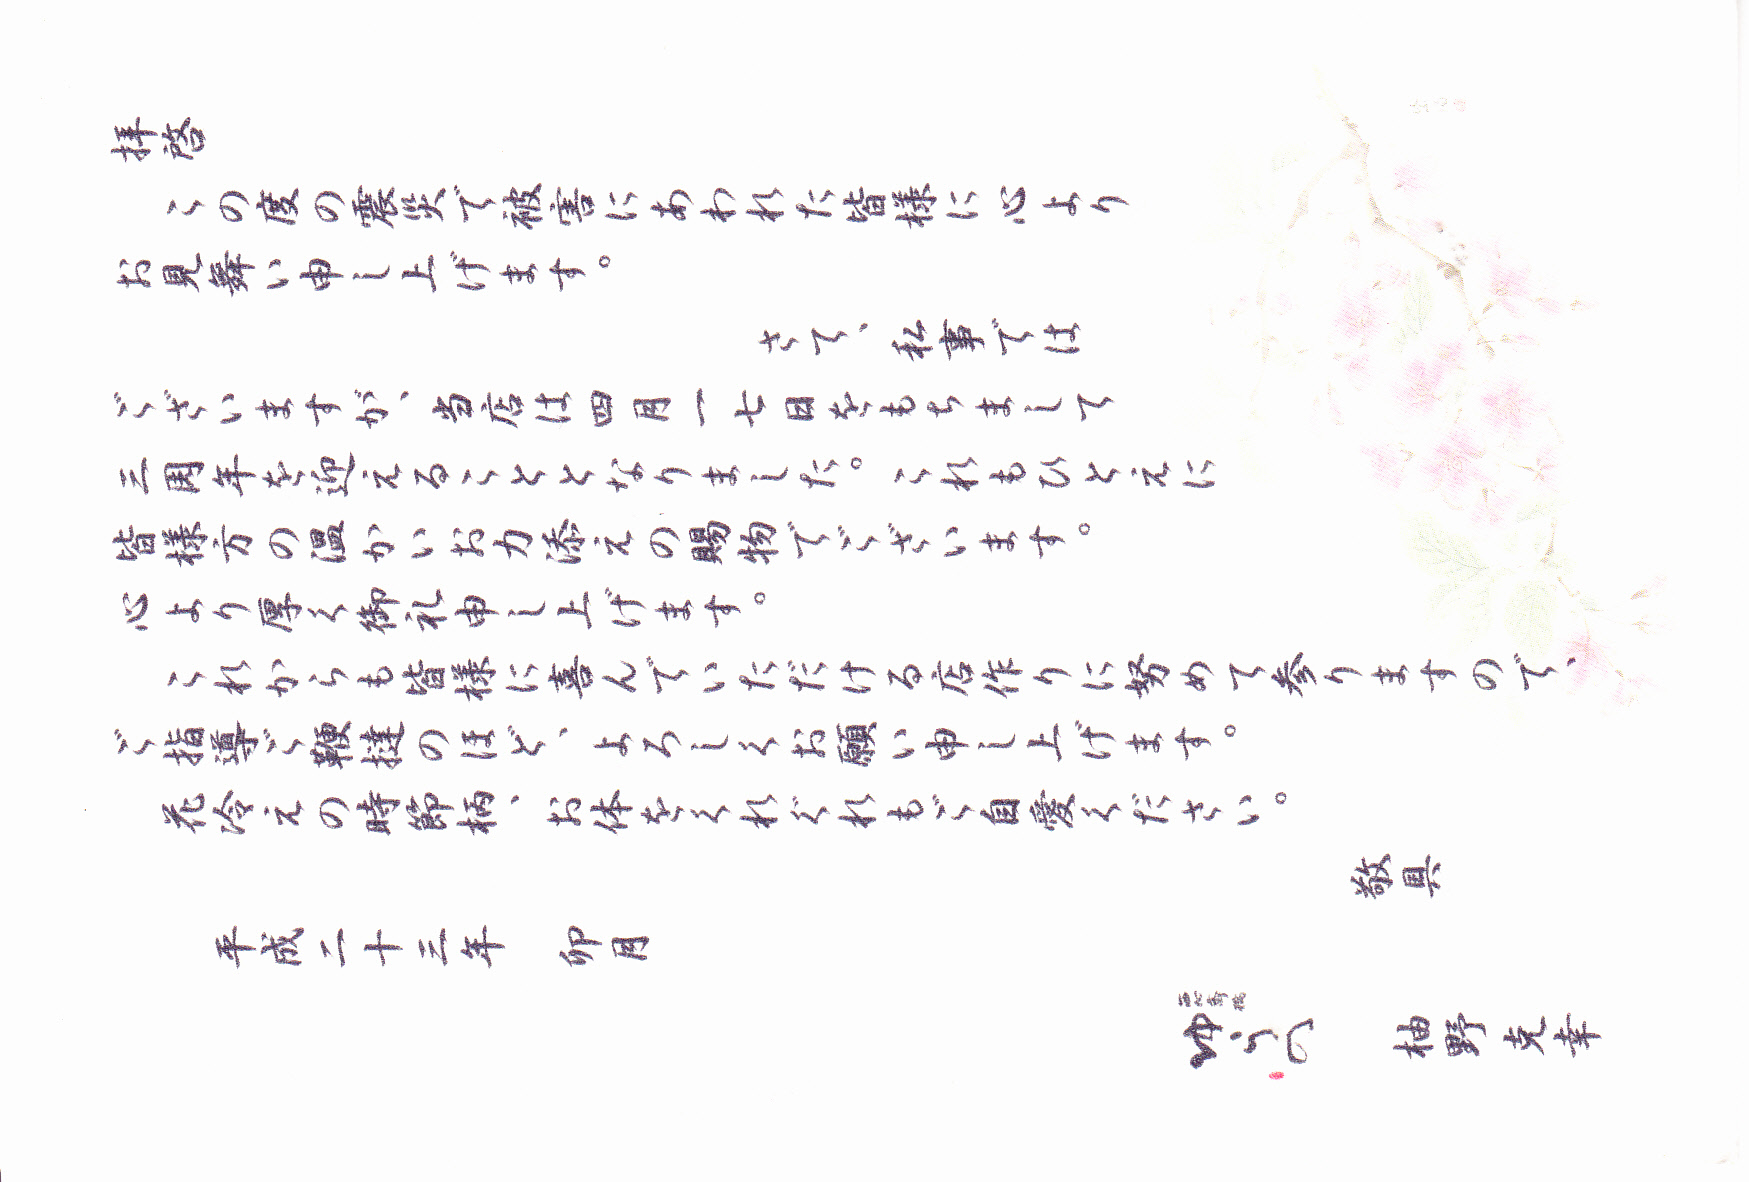 拝啓
この度の震災で被害にあわれた皆様に心より
お見舞い申し上げます。
さて、私事では
ございますが、当店は四月一七日をもちまして
三周年を迎えることとなりました。これもひとえに
皆様方の温かいお力添えの賜物でございます。
心より厚く御礼申し上げます。
これからも皆様に喜んでいただける店作りに努めて参りますので、
ご指導ご鞭撻のほど、よろしくお願い申し上げます。
花冷えの時節柄、お体をくれぐれもご自愛ください。
敬具
平成二十三年　卯月
柚野克幸